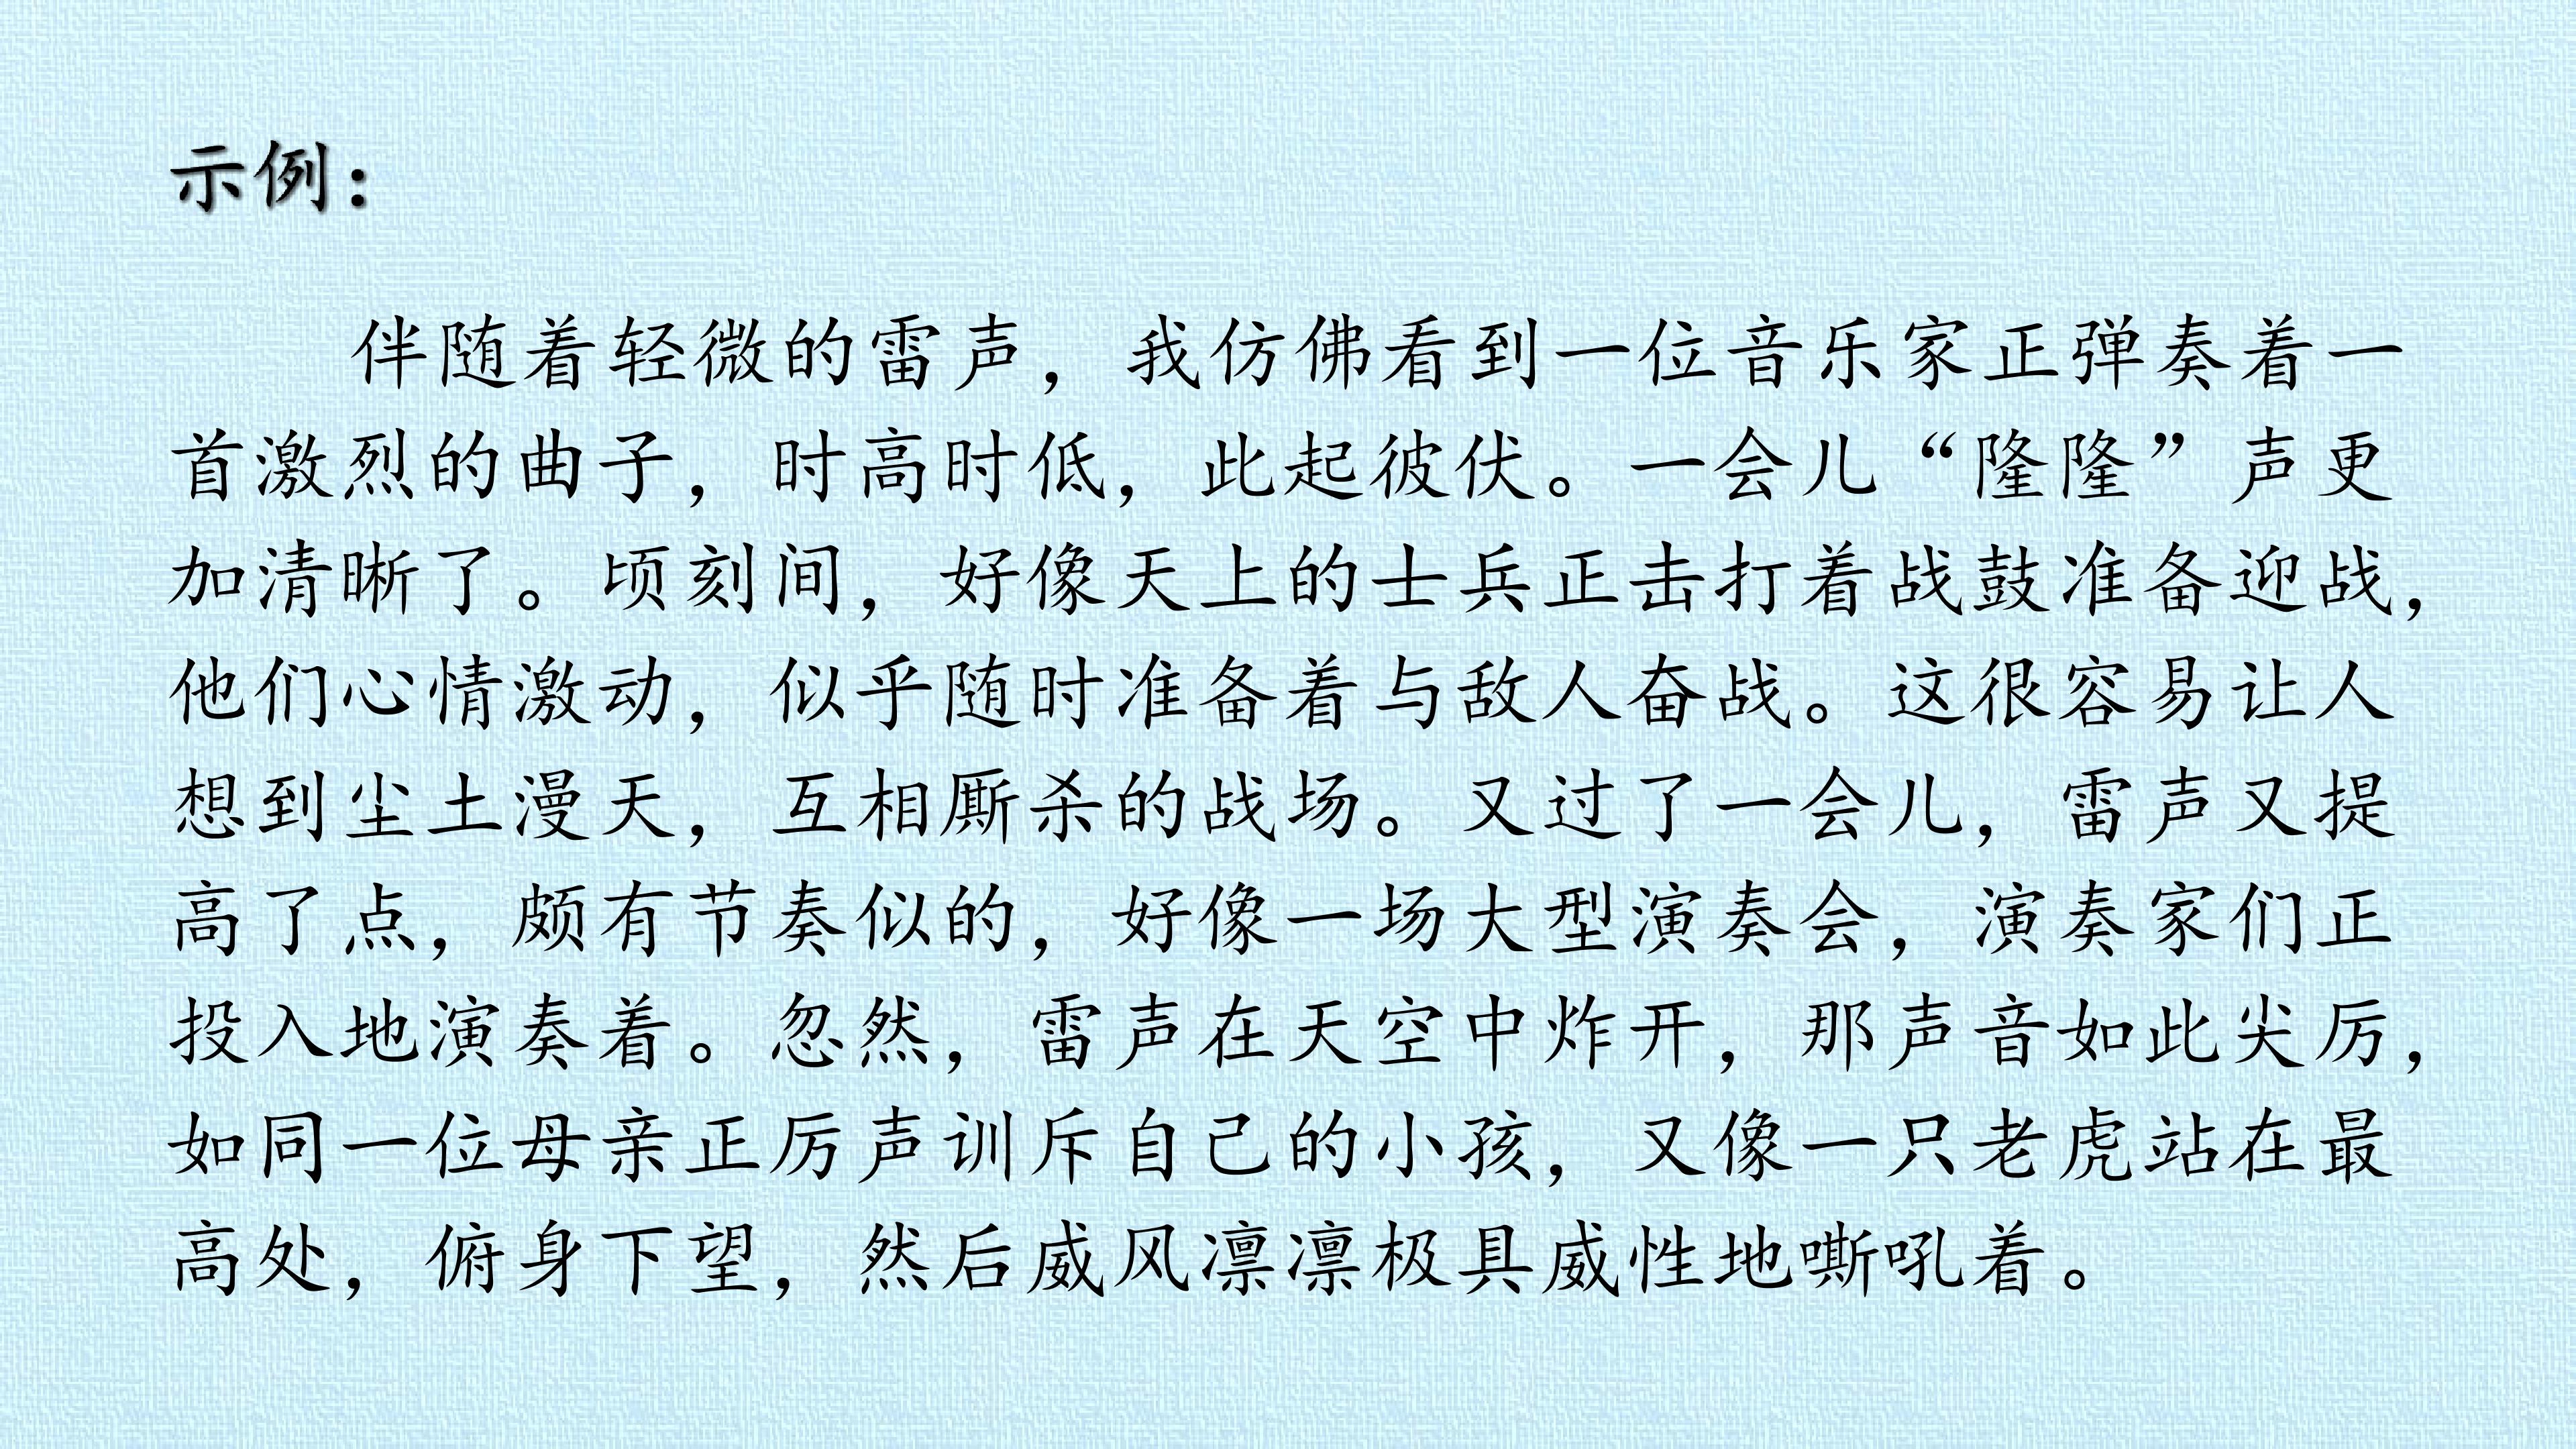 示例：
伴随着轻微的雷声，我仿佛看到一位音乐家正弹奏着一
首激烈的曲子，时高时低，此起彼伏。一会儿“隆隆”声更
加清晰了。顷刻间，好像天上的士兵正击打着战鼓准备迎战，
他们心情激动，似乎随时准备着与敌人奋战。这很容易让人
想到尘土漫天，互相厮杀的战场。又过了一会儿，雷声又提
高了点，颇有节奏似的，好像一场大型演奏会，演奏家们正
投入地演奏着。忽然，雷声在天空中炸开，那声音如此尖厉，
如同一位母亲正厉声训斥自己的小孩，又像一只老虎站在最
高处，俯身下望，然后威风凛凛极具威性地嘶吼着。